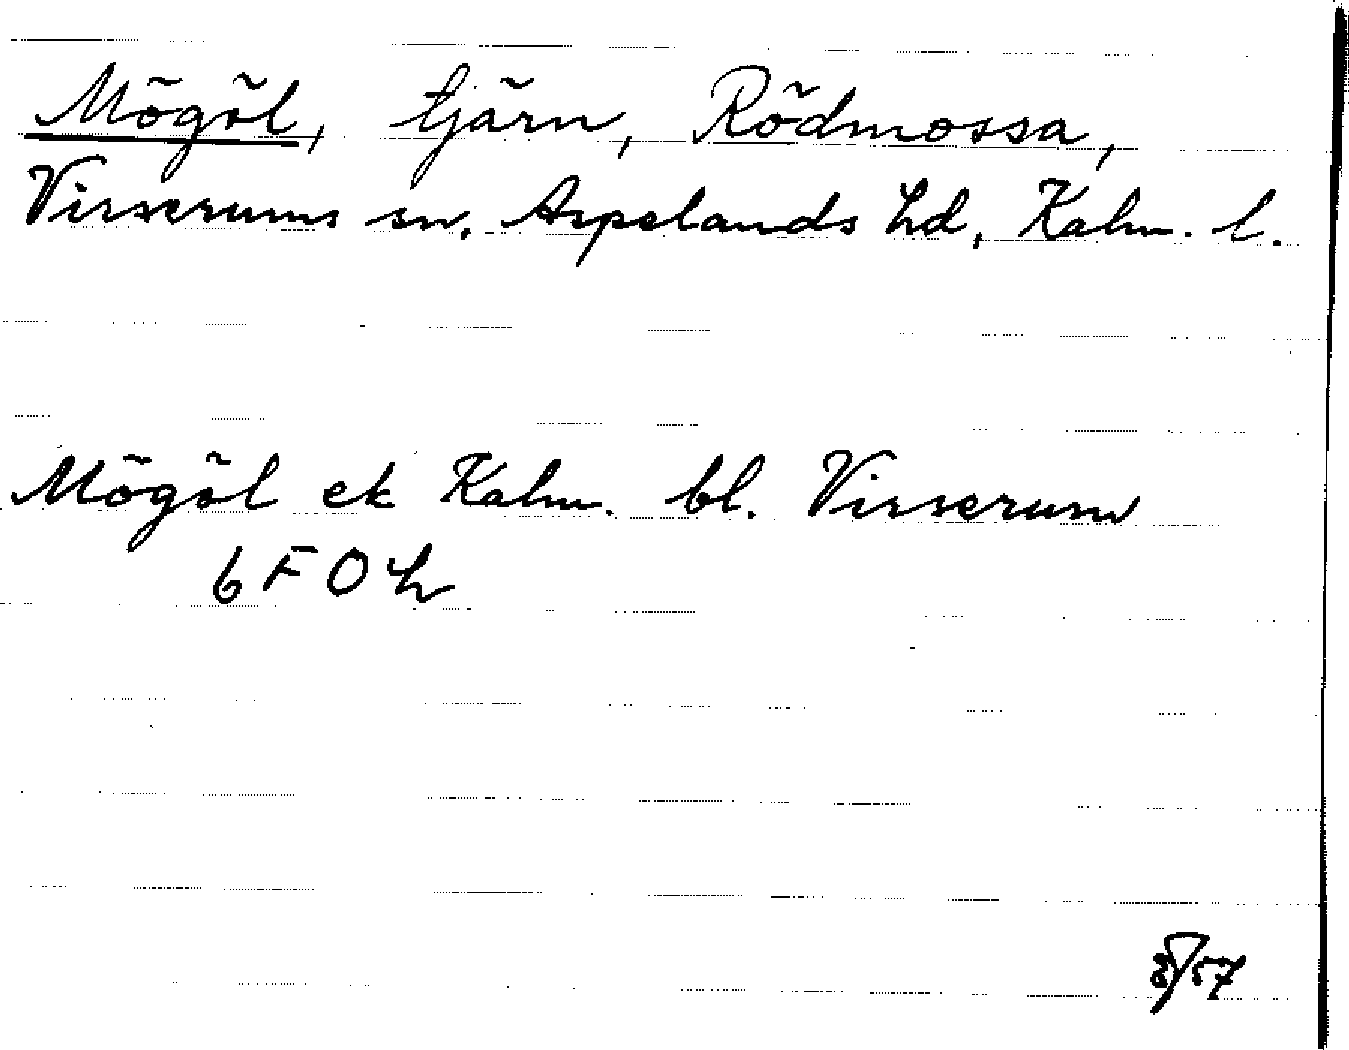 Mögöl, tjärn, Rödmossa,
Virserums sn. Aspelands hd, Kalm. l.
Mögöl ek Kalm. bl. Virserum
6 F O h